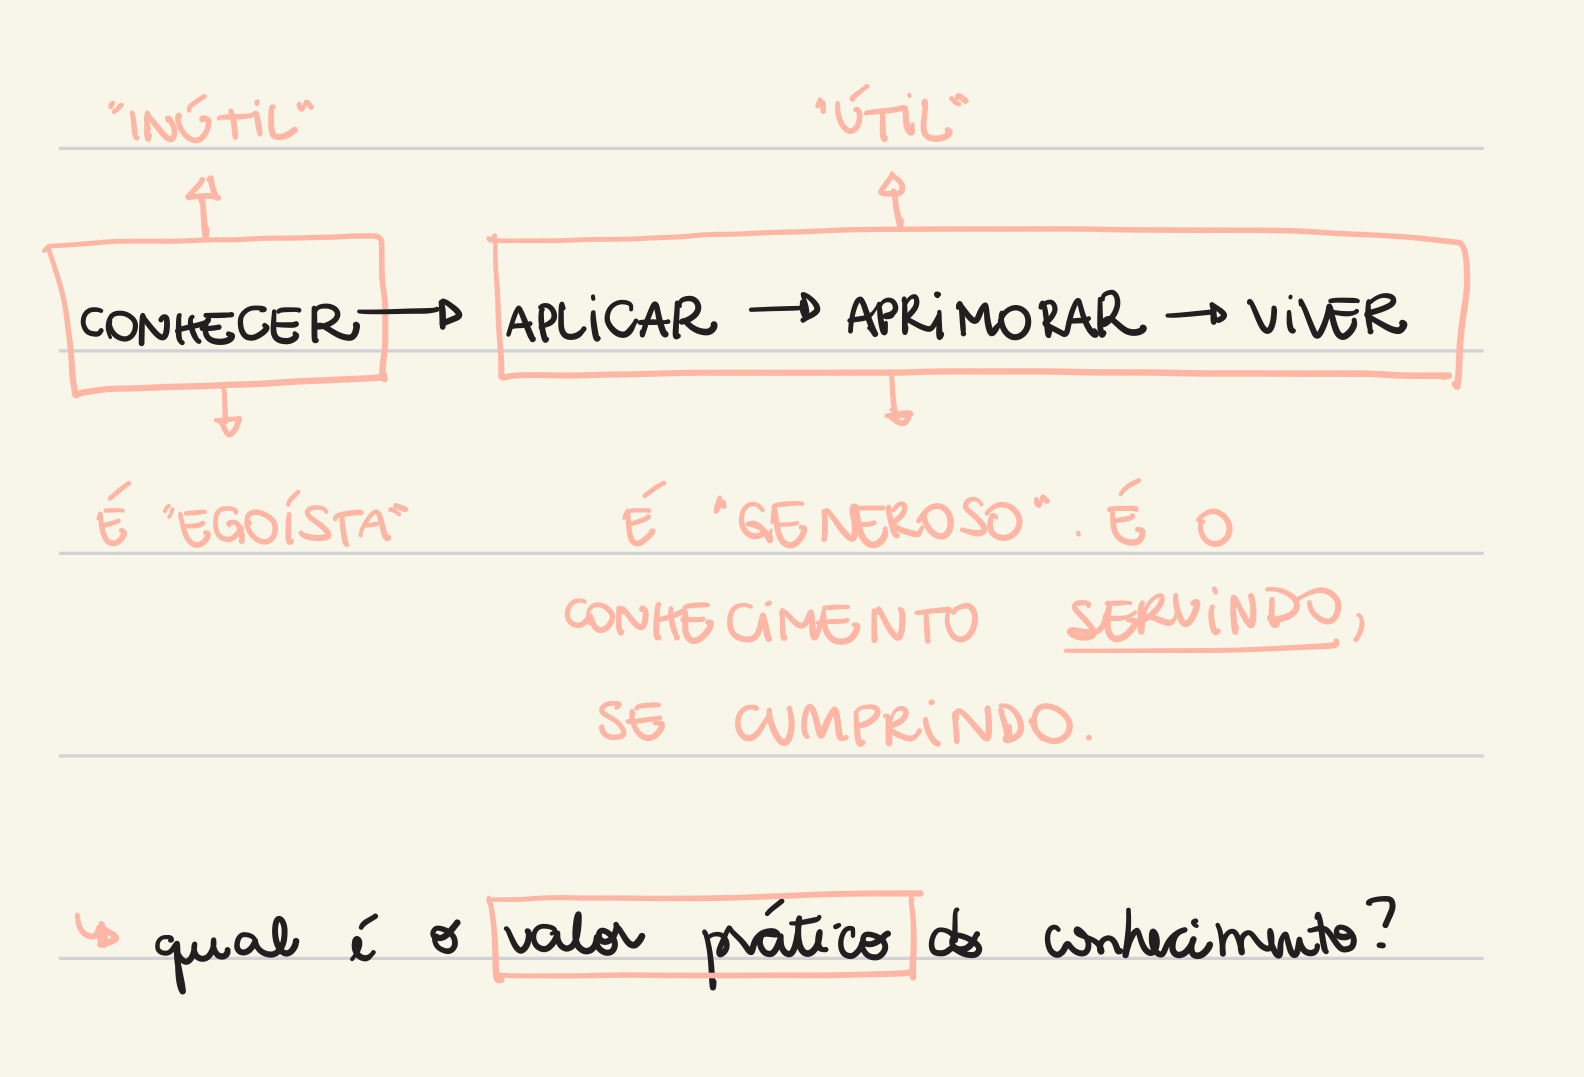 "INÚTIL" "ÚTIL"
CONHECER → APLICAR → APRIMORAR → VIVER
É "EGOÍSTA" É "GENEROSO". É O
CONHECIMENTO SERVINDO,
SE CUMPRINDO.
↳ qual é o valor prático do conhecimento?